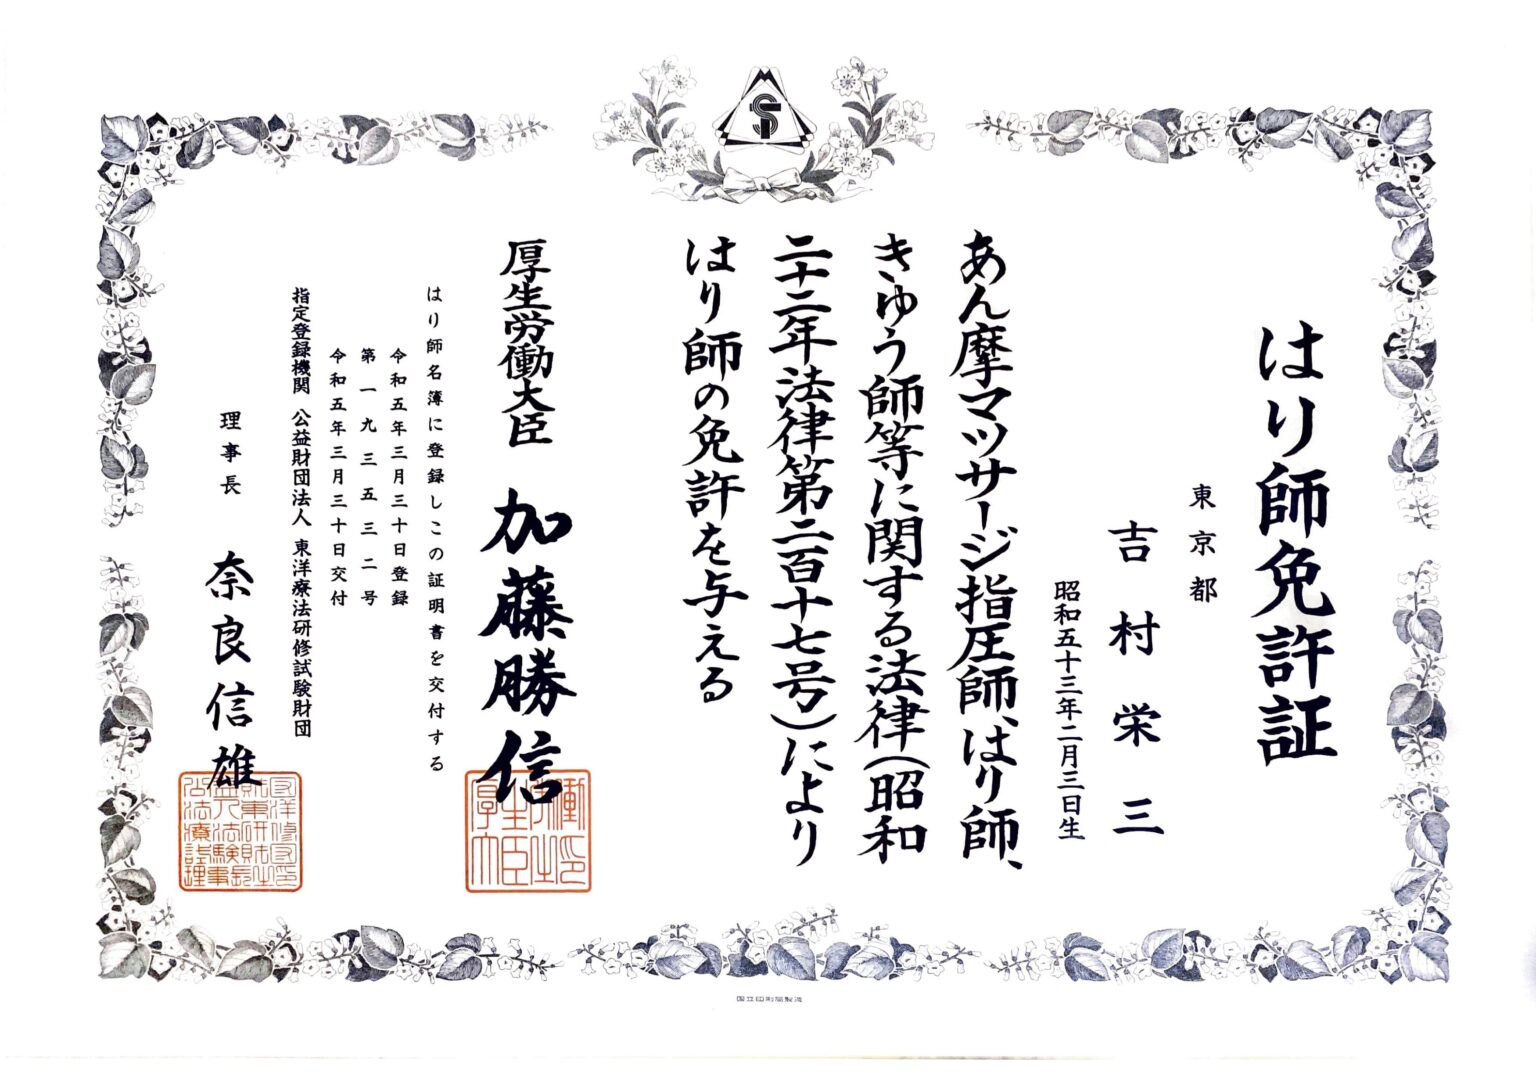 はり師免許証
東京都
吉村栄三
昭和五十三年二月三日生
あん摩マツサージ指圧師、はり師、
きゆう師等に関する法律(昭和
二十二年法律第二百十七号)により
はり師の免許を与える
厚生労働大臣 加藤勝信
はり師名簿に登録しこの証明書を交付する
令和五年三月三十日登録
第一九三五三二号
令和五年三月三十日交付
指定登録機関 公益財団法人 東洋療法研修試験財団
理事長 奈良信雄
国立印刷局製造